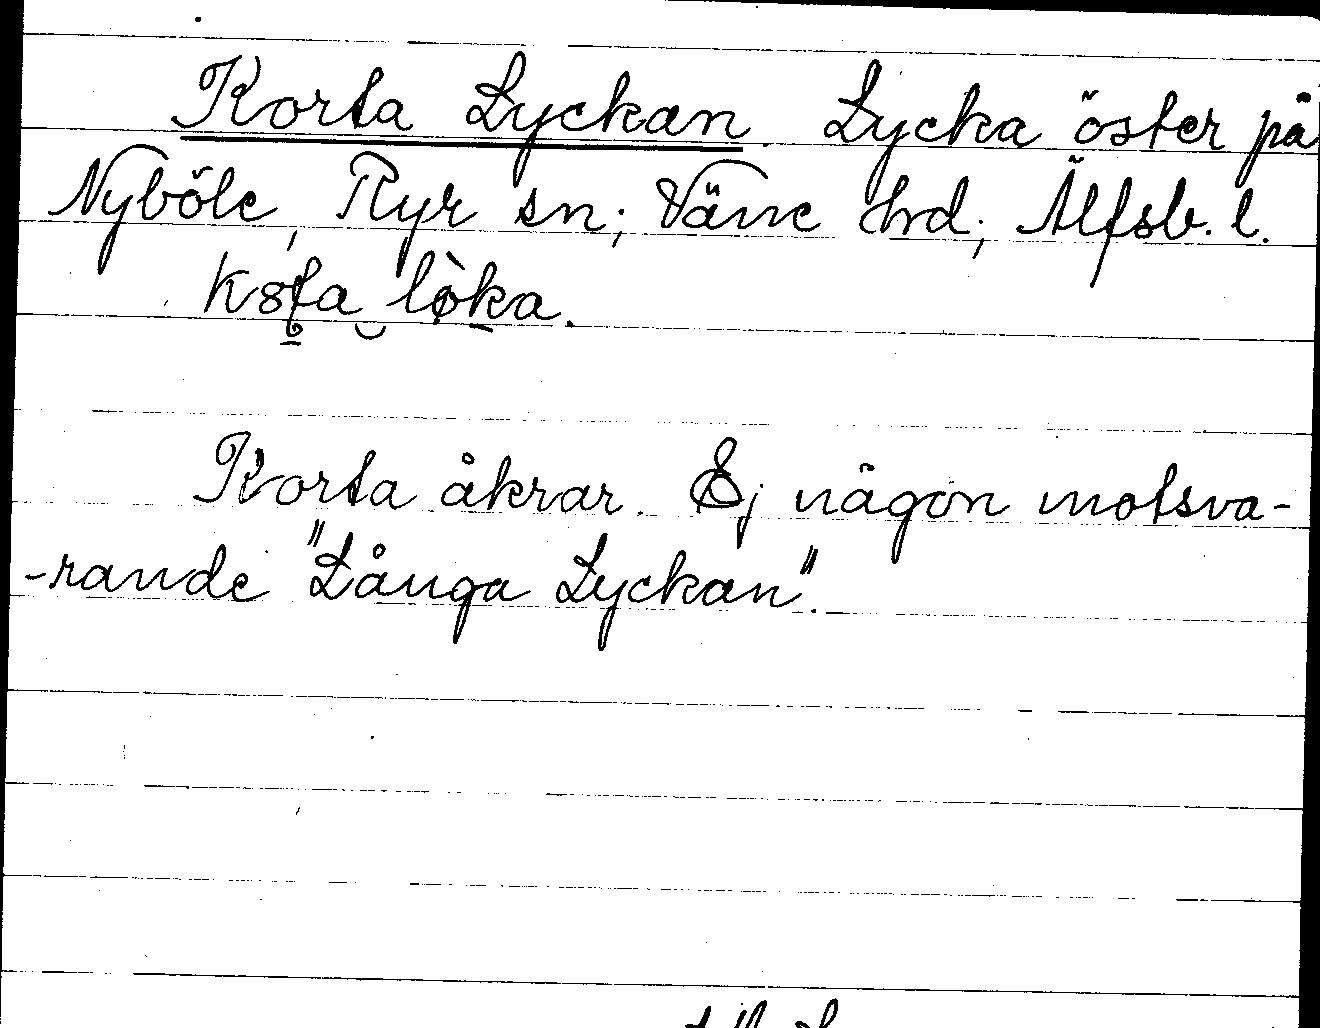 Korta Lyckan. Lycka öster på
Nyböle, Ryr sn; Väne hrd; Älfsb. l.
Korta åkrar. Ej någon motsva-
-rande "Långa Lyckan".